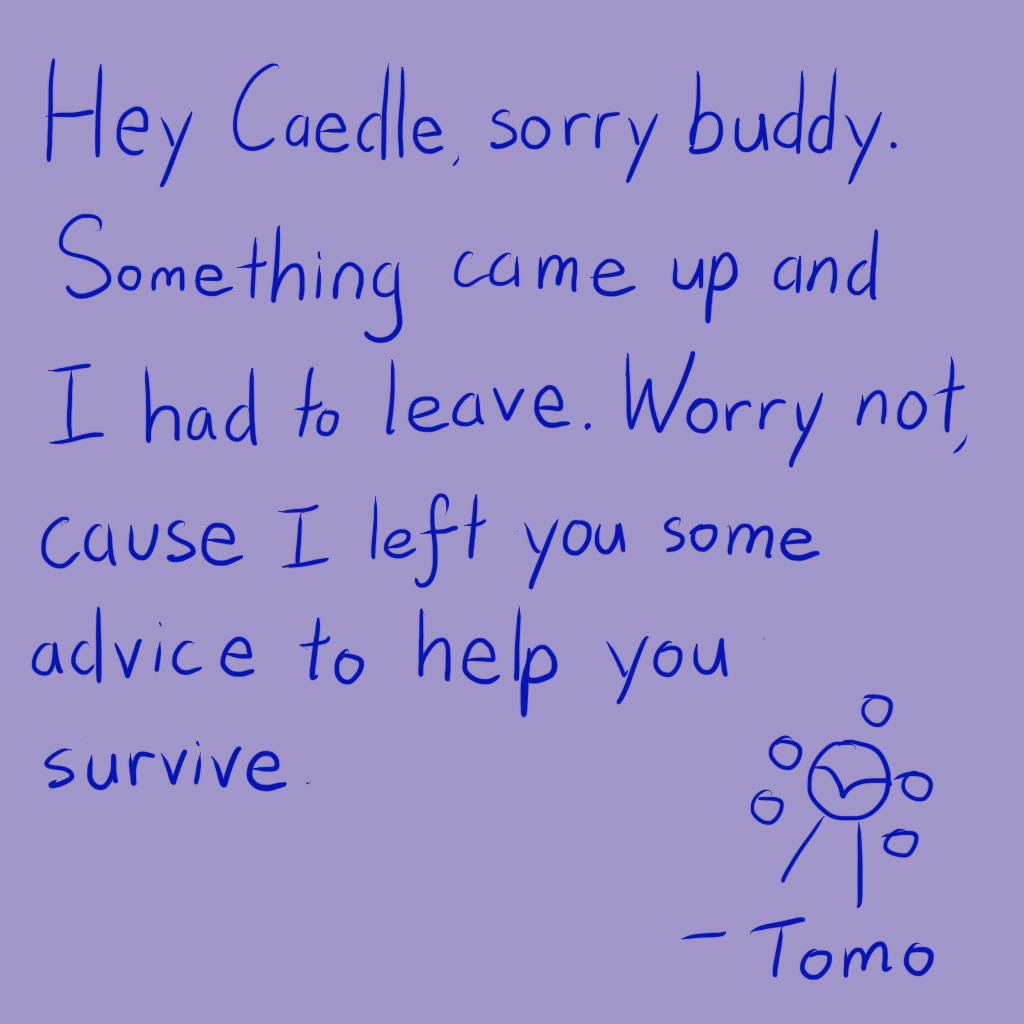 Hey Caedle, sorry buddy.
Something came up and
I had to leave. Worry not,
cause I left you some
advice to help you
survive.
- Tomo